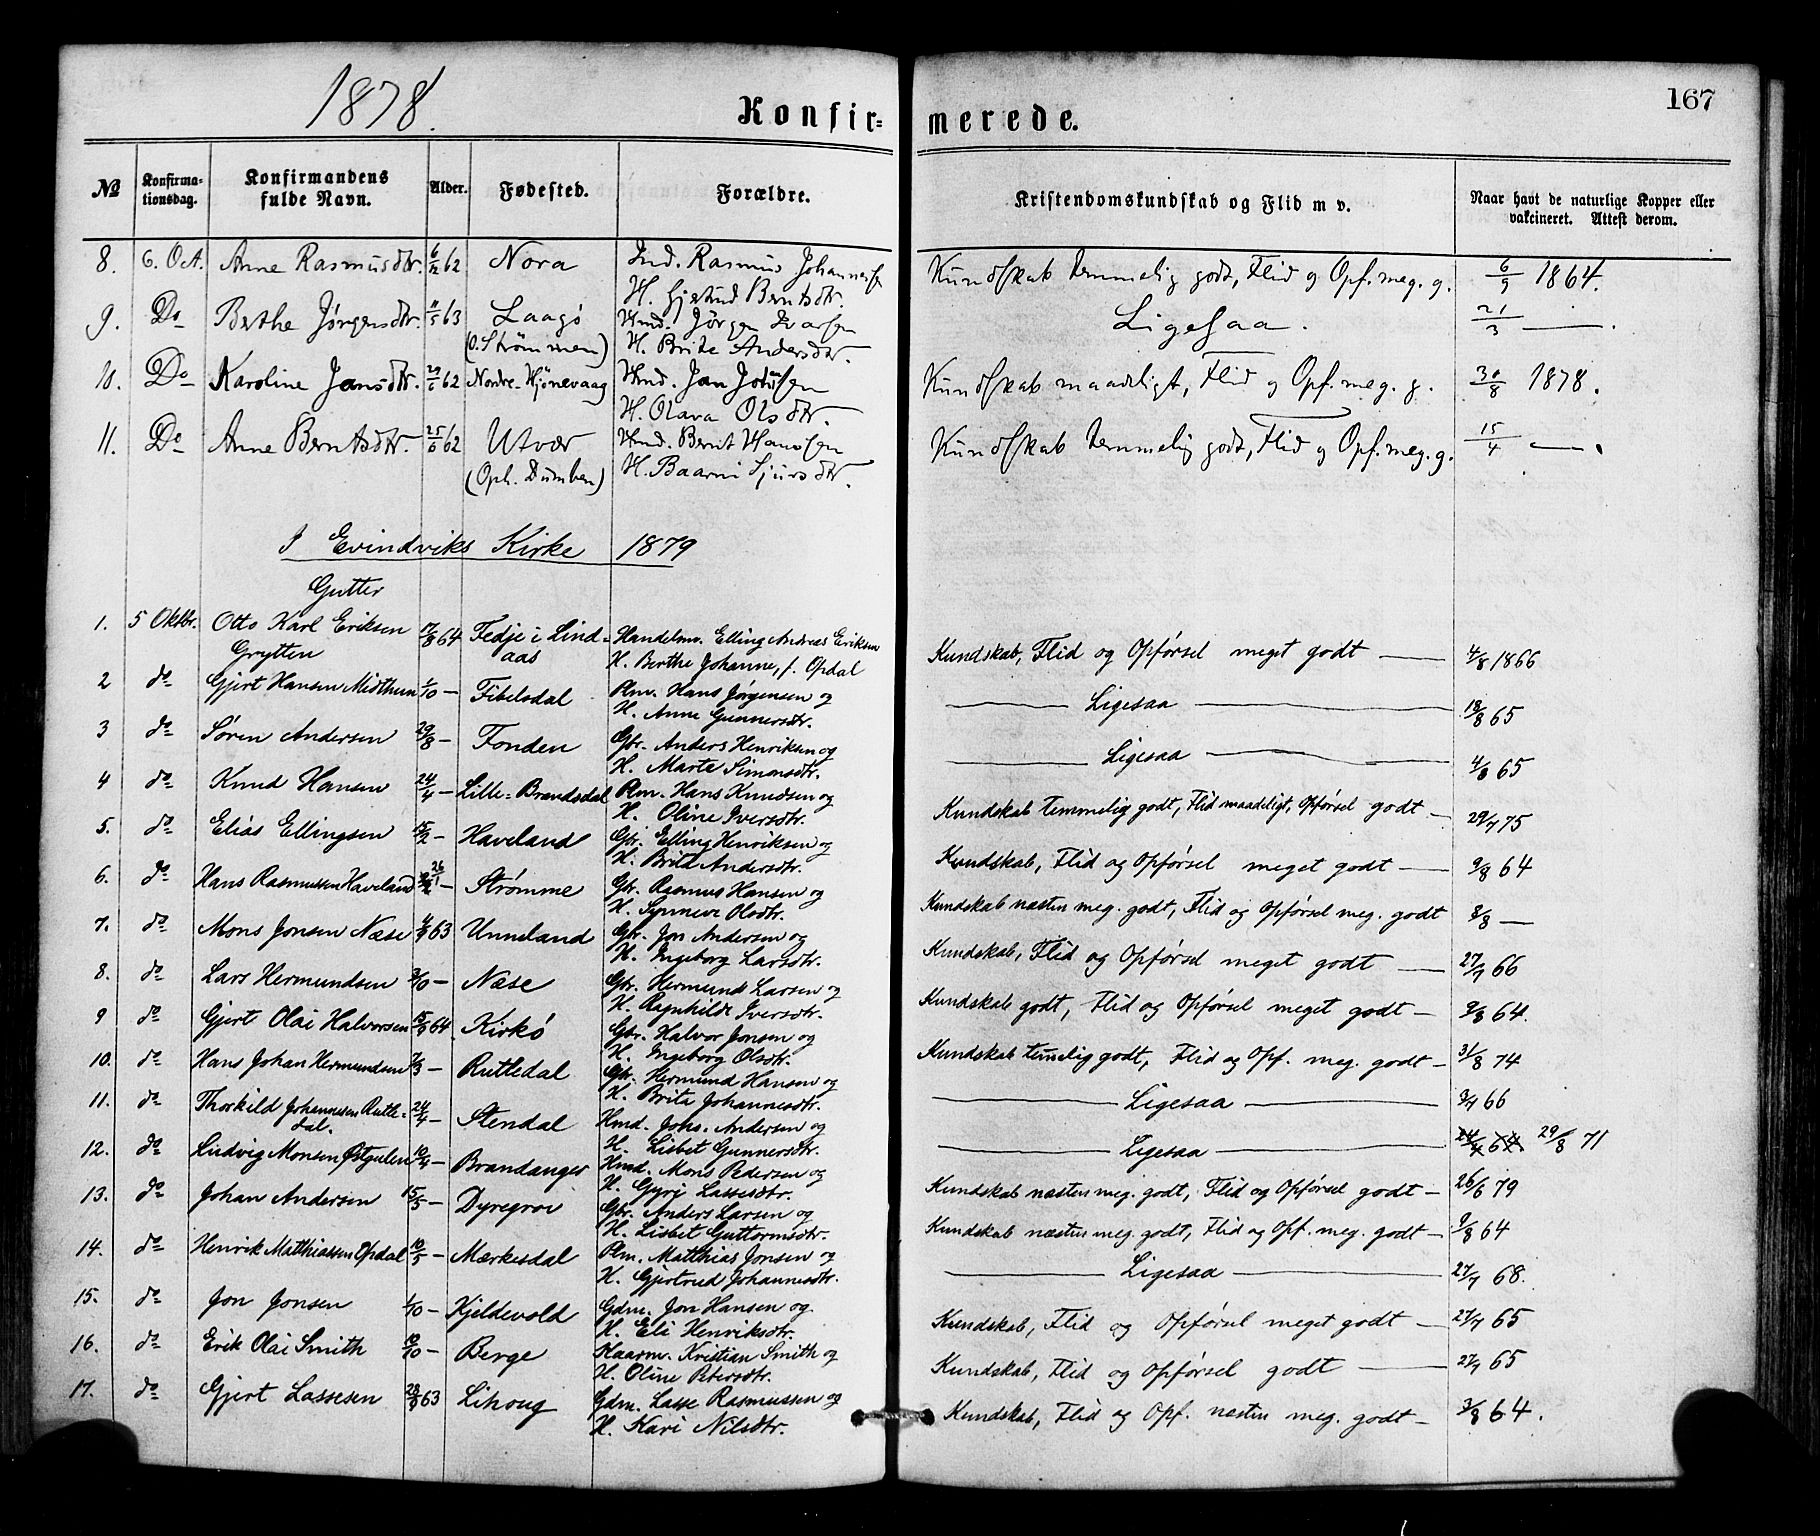 1878.
Konfirmerede.
167
№ Konfirmationsdag. Konfirmandens fulde Navn. Alder. Fødested. Forældre. Kristendomskundskab og Flid m v. Naar havt de naturlige Kopper eller vakcineret. Attest derom.
8. 6. Okt. Anne Rasmusdtr. 62 Nora Ind. Rasmus Johannes Kundskab temmelig godt, Flid og Opf. meg. g. 6/9 1864.
H. Gjertrud Berntsdtr.
9. Do Berthe Jørgensdtr. 63 Laagø Hmd. Jørgen Ivarsen Ligesaa. 21/3 — .
(O. Strömmen) H. Brite Andersdtr.
10. Do Karoline Jansdtr. 62 Nordre-Hjönevaag Hmd. Jan Johansen Kundskab maadeligt, Flid og Opf. meg. g. 30/8 1878.
H. Olava Olsdtr.
11. Do Anne Berntsdtr. 25/6 62 Utvær Hmd. Bernt Hansen Kundskab temmelig godt, Flid og Opf. meg. g. 15/4 — .
(Oph. Dumben) H. Baarni Sjursdtr.
I Evindviks Kirke 1879
Gutter
1. 5 Oktbr. Otto Karl Eriksen 17/8 64 Fedje i Lind= Handelmv. Elling Andreas Eriksen Kundskab, Flid og Opførsel meget godt — 4/8 1866
Grytten aas H. Berthe Johanne, f. Opdal
2 do Gjert Hansen Midthun 1/10 — Fibelsdal Plm. Hans Jørgensen og — Ligesaa — 18/8 65
H. Anne Gunnersdtr.
3 do Søren Andersen 29/8 — Fonden Gbr. Anders Henriksen og — Ligesaa — 4/8 65
H. Marte Simonsdtr.
4 do Knud Hansen 24/4 — Lille=Brandsdal Plm. Hans Knudsen og Kundskab temmelig godt, Flid maadeligt, Opførsel godt — 29/7 75
H. Oline Iversdtr.
5. do Elias Ellingsen 15/2 — Haveland Gbr. Elling Henriksen og Kundskab, Flid og Opførsel meget godt — 9/8 64
H. Brita Andersdtr.
6. do Hans Rasmussen Haveland 26/1 — Strømme Gbr. Rasmus Hansen og Kundskab næsten meg. godt, Flid og Opførsel meg. godt 8/8 —
H. Synneve Olsdtr.
7. do Mons Jonsen Næse 63 Unneland Gbr. Jon Andersen og Kundskab, Flid og Opførsel meget godt — 27/7 66
H. Ingeborg Larsdtr.
8. do Lars Hermundsen 3/10 — Næse Gbr. Hermund Larsen og Kundskab godt, Flid og Opførsel meget godt — 9/8 64.
H. Ragnhilde Iversdtr.
9 do Gjert Olai Halvorsen 64 Kirkö Gbr. Halvor Jonsen og Kundskab temelig godt, Flid og Opf. meg. godt — 31/8 74
H. Ingeborg Olsdtr.
10. do Hans Johan Hermundsen 7/3 — Ruttedal Gbr. Hermund Hansen og — Ligesaa — 3/7 66
H. Brita Johannesdtr.
11. do Thorkild Johannesen Rutte= 24/4 — Stendal Hmd. Johs. Andersen og — Ligesaa — 29/8 71
dal. H. Lisbet Gunnersdtr.
12. do Ludvig Monsen Østgulen 10/4 — Brandanger Hmd. Mons Pedersen og Kundskab næsten meg. godt, Flid og Opførsel godt — 26/6 79
H. Gyrj Lassesdtr.
13. do Johan Andersen 15/5 — Dyregroi Gbr. Anders Larsen og Kundskab næsten meg. godt, Flid og Opf. meg. godt — 9/8 64
H. Lisbet Guttormsdtr.
14. do Henrik Matthiassen Opdal 10/5 — Mærkesdal Plm. Matthias Jonsen og — Ligesaa — 27/7 68.
H. Gjertrud Johannesdtr.
15. do Jon Jonsen 1/10 — Kjeldevold Gdm. Jon Hansen og Kundskab, Flid og Opførsel meget godt — 27/7 65
H. Eli Henriksdtr.
16. do Erik Olai Smith 12/10 — Berge Haarm. Kristian Smith og Kundskab, Flid og Opførsel godt — 27/7 65
H. Oline Petersdtr.
17. do Gjert Lassesen 63 Lihoug Gdm. Lasse Rasmussen og Kundskab, Flid og Opf. næsten meg. godt — 3/8 64.
H. Kari Nilsdtr.